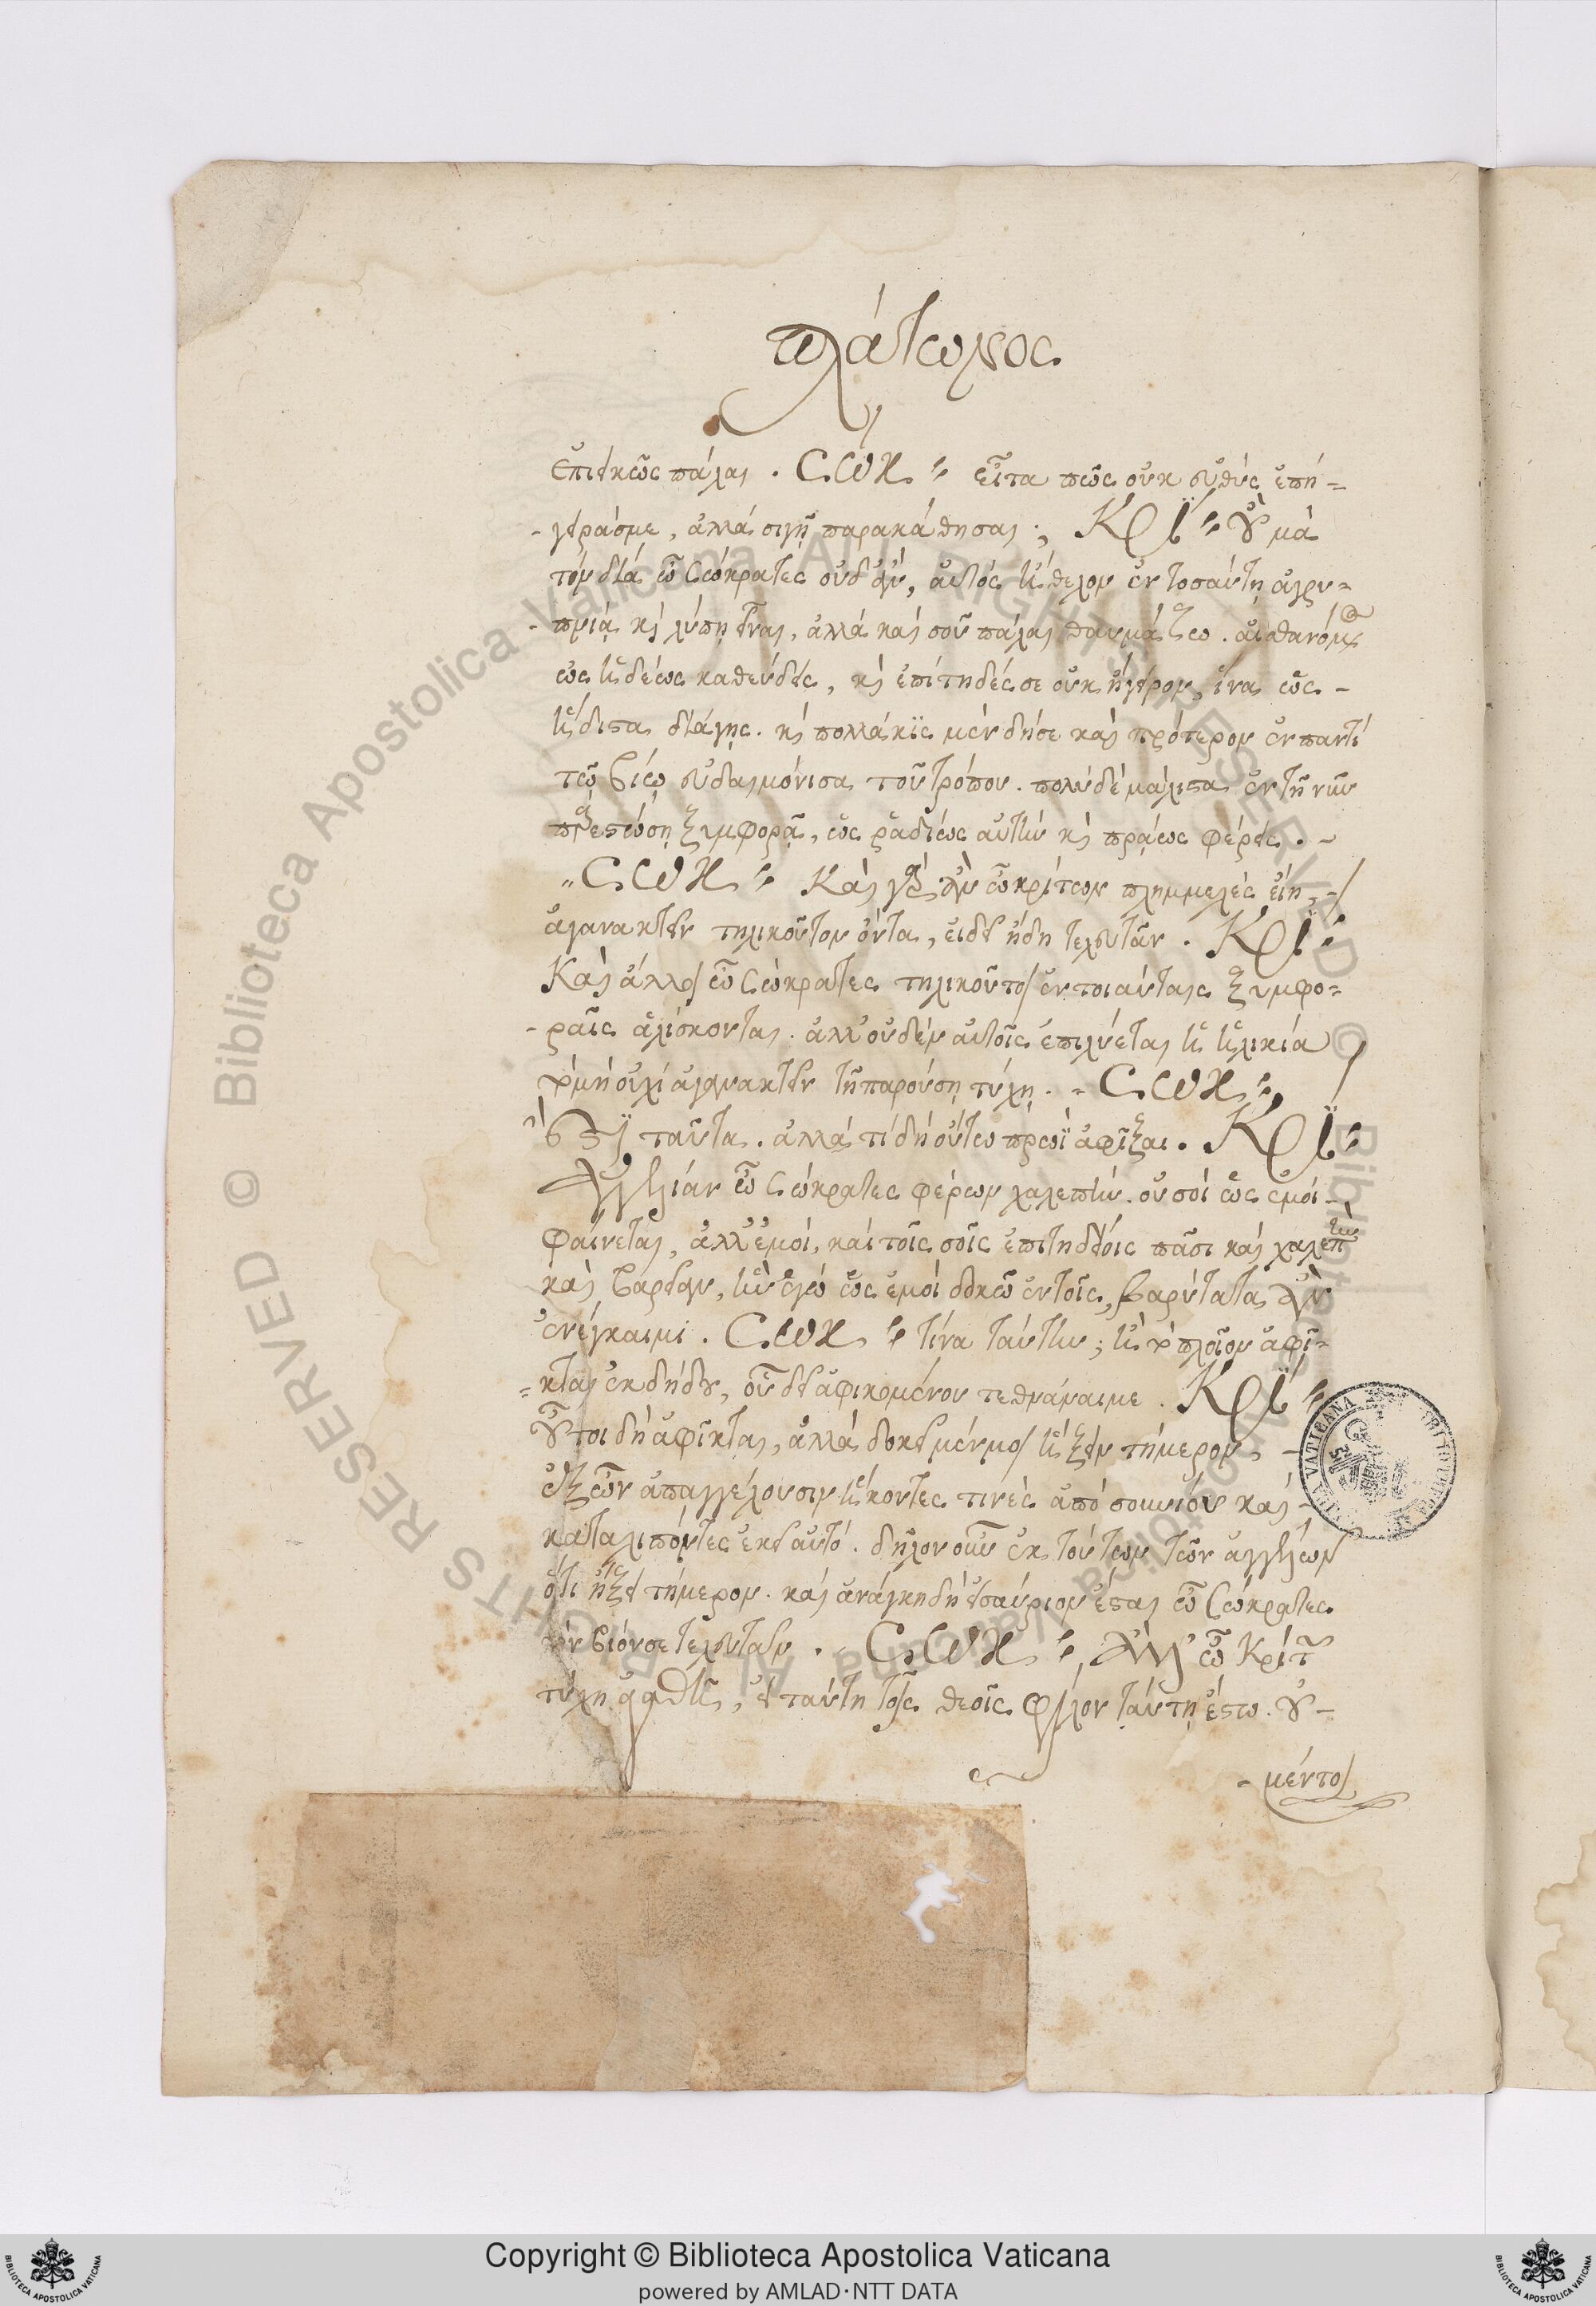 πλάτωνος
ἐπιεικῶς πάλαι. ΣΩΚ: εἶτα πῶς οὐκ εὐθὺς ἐπή-
-γειράς με, ἀλλὰ σιγῇ παρακάθησαι; ΚΡΙ: οὐ μὰ
τὸν δία ὦ σώκρατες οὐδ' ἂν, αὐτὸς ἤθελον ἐν τοσαύτῃ ἀγρυ-
-πνίᾳ κὶ λύπῃ εἶναι, ἀλλὰ καὶ σοῦ πάλαι θαυμάζω. αἰσθανόμενος
ὡς ἡδέως καθεύδεις, κὶ ἐπίτηδές σε οὐκ ἤγειρον, ἵνα ὡς -
ἥδιστα διάγῃς. κὶ πολλάκις μὲν δή σε καὶ πρότερον ἐν παντὶ
τῷ βίῳ εὐδαιμόνισα τοῦ τρόπου. πολὺ δὲ μάλιστα ἐν τῇ νῦν
παρεστώσῃ ξυμφορᾷ, ὡς ῥαδίως αὐτὴν κὶ πράως φέρεις. -
ΣΩΚ: Καὶ γὰρ ἂν ὦ κρίτων πλημμελὲς εἴη,
ἀγανακτεῖν τηλικοῦτον ὄντα, εἰ δεῖ ἤδη τελευτᾶν. ΚΡΙ:
Καὶ ἄλλοι ὦ σώκρατες τηλικοῦτοι ἐν τοιαύταις ξυμφο-
-ραῖς ἁλίσκονται. ἀλλ' οὐδὲν αὐτοῖς ἐπιλύεται ἡ ἡλικία
τὸ μὴ οὐχὶ ἀγανακτεῖν τῇ παρούσῃ τύχῃ. - ΣΩΚ:
ἔστι ταῦτα. ἀλλὰ τί δὴ οὕτω πρωῒ ἀφῖξαι. ΚΡΙ:
Ἀγγελίαν ὦ σώκρατες φέρων χαλεπὴν. οὐ σοὶ ὡς ἐμοὶ -
φαίνεται, ἀλλ' ἐμοὶ, καὶ τοῖς σοῖς ἐπιτηδείοις πᾶσι καὶ χαλεπὴν
καὶ βαρεῖαν, ἣν ἐγὼ ὡς ἐμοὶ δοκῶ ἐν τοῖς, βαρύτατα ἂν
ἐνέγκαιμι. ΣΩΚ: τίνα ταύτην; ἢ τὸ πλοῖον ἀφῖ-
-κται ἐκ δήλου, οὗ δεῖ ἀφικομένου τεθνάναι με. ΚΡΙ:
οὔτοι δὴ ἀφῖκται, ἀλλὰ δοκεῖ μέν μοι ἥξειν τήμερον, -
ἐξ ὧν ἀπαγγέλουσιν ἥκοντές τινες ἀπὸ σουνίου καὶ -
καταλιπόντες ἐκεῖ αὐτό. δῆλον οὖν ἐκ τούτων τῶν ἀγγέλων
ὅτι ἥξει τήμερον. καὶ ἀνάγκη δὴ εἰσαύριον ἔσται ὦ Σώκρατες
τὸν βίον σε τελευτᾶν. - ΣΩΚ: Ἀλλ' ὦ Κρίτων
τύχῃ ἀγαθῇ, εἰ ταύτῃ τοῖς θεοῖς φίλον ταύτῃ ἔστω. οὐ -
- μέντοι
Copyright © Biblioteca Apostolica Vaticana
powered by AMLAD・NTT DATA